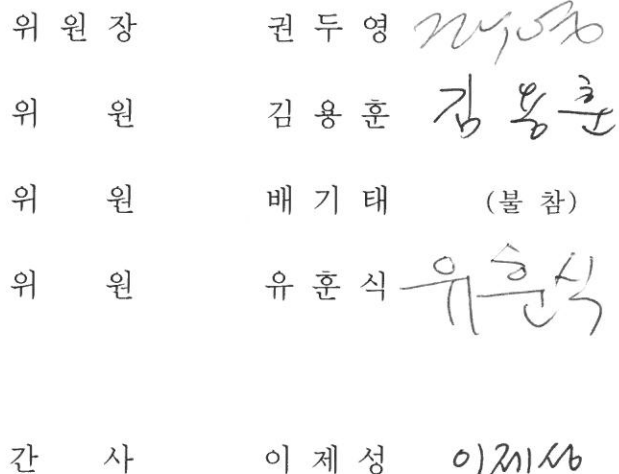 위 원 장 권 두 영
위 원 김 용 훈 김용훈
위 원 배 기 태 (불 참)
위 원 유 훈 식 유훈식
간 사 이 제 성 이제성